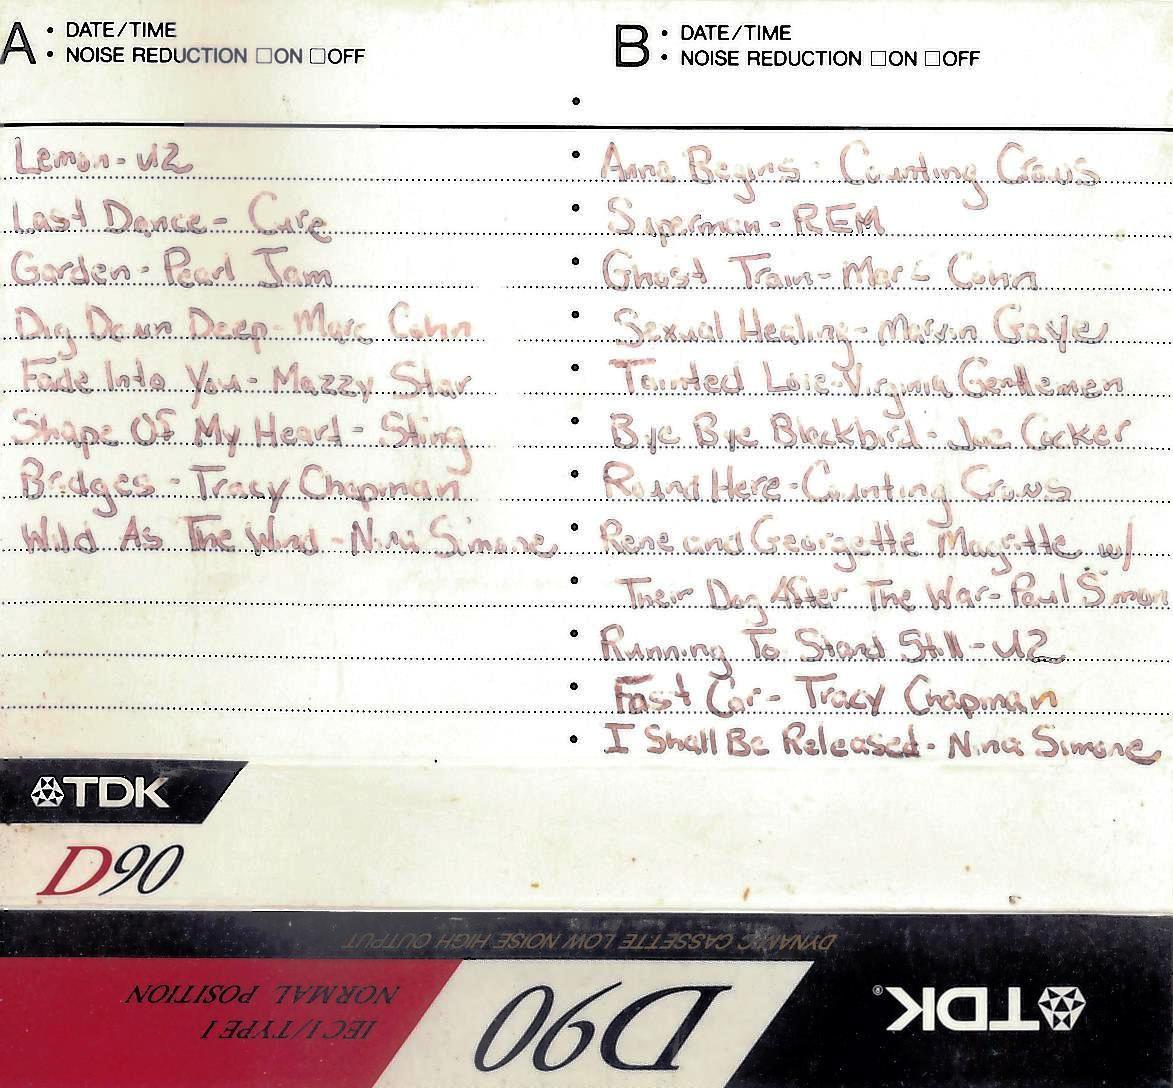 A • DATE/TIME
• NOISE REDUCTION □ON □OFF
Lemon - U2
Last Dance - Cure
Garden - Pearl Jam
Dig Down Deep - Marc Cohn
Fade Into You - Mazzy Star
Shape Of My Heart - Sting
Bridges - Tracy Chapman
Wild As The Wind - Nina Simone
B • DATE/TIME
• NOISE REDUCTION □ON □OFF
Anna Begins - Counting Crows
Superman - REM
Ghost Train - Marc Cohn
Sexual Healing - Marvin Gaye
Tainted Love - Virginia Gentlemen
Bye Bye Blackbird - Joe Cocker
Round Here - Counting Crows
Rene and Georgette Magritte w/
Their Dog After The War - Paul Simon
Running To Stand Still - U2
Fast Car - Tracy Chapman
I Shall Be Released - Nina Simone
TDK
D90
DYNAMIC CASSETTE LOW NOISE HIGH OUTPUT
TDK®
D90
IEC I/TYPE I
NORMAL POSITION